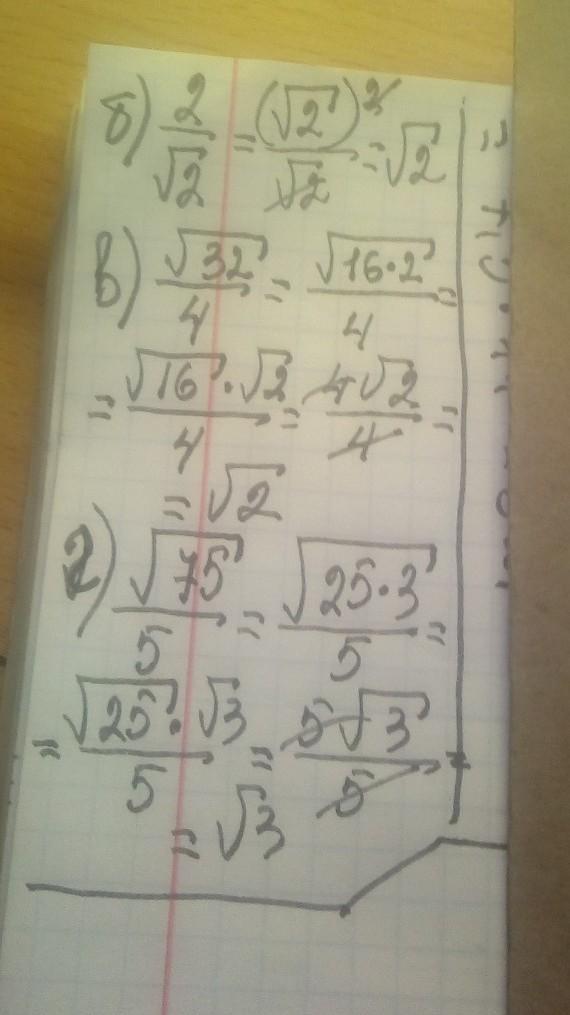 б) 2/√2 = (√2)²/√2 = √2
в) √32/4 = √16·2/4 =
= √16·√2/4 = 4√2/4 =
= √2
г) √75/5 = √25·3/5 =
= √25·√3/5 = 5√3/5 =
= √3